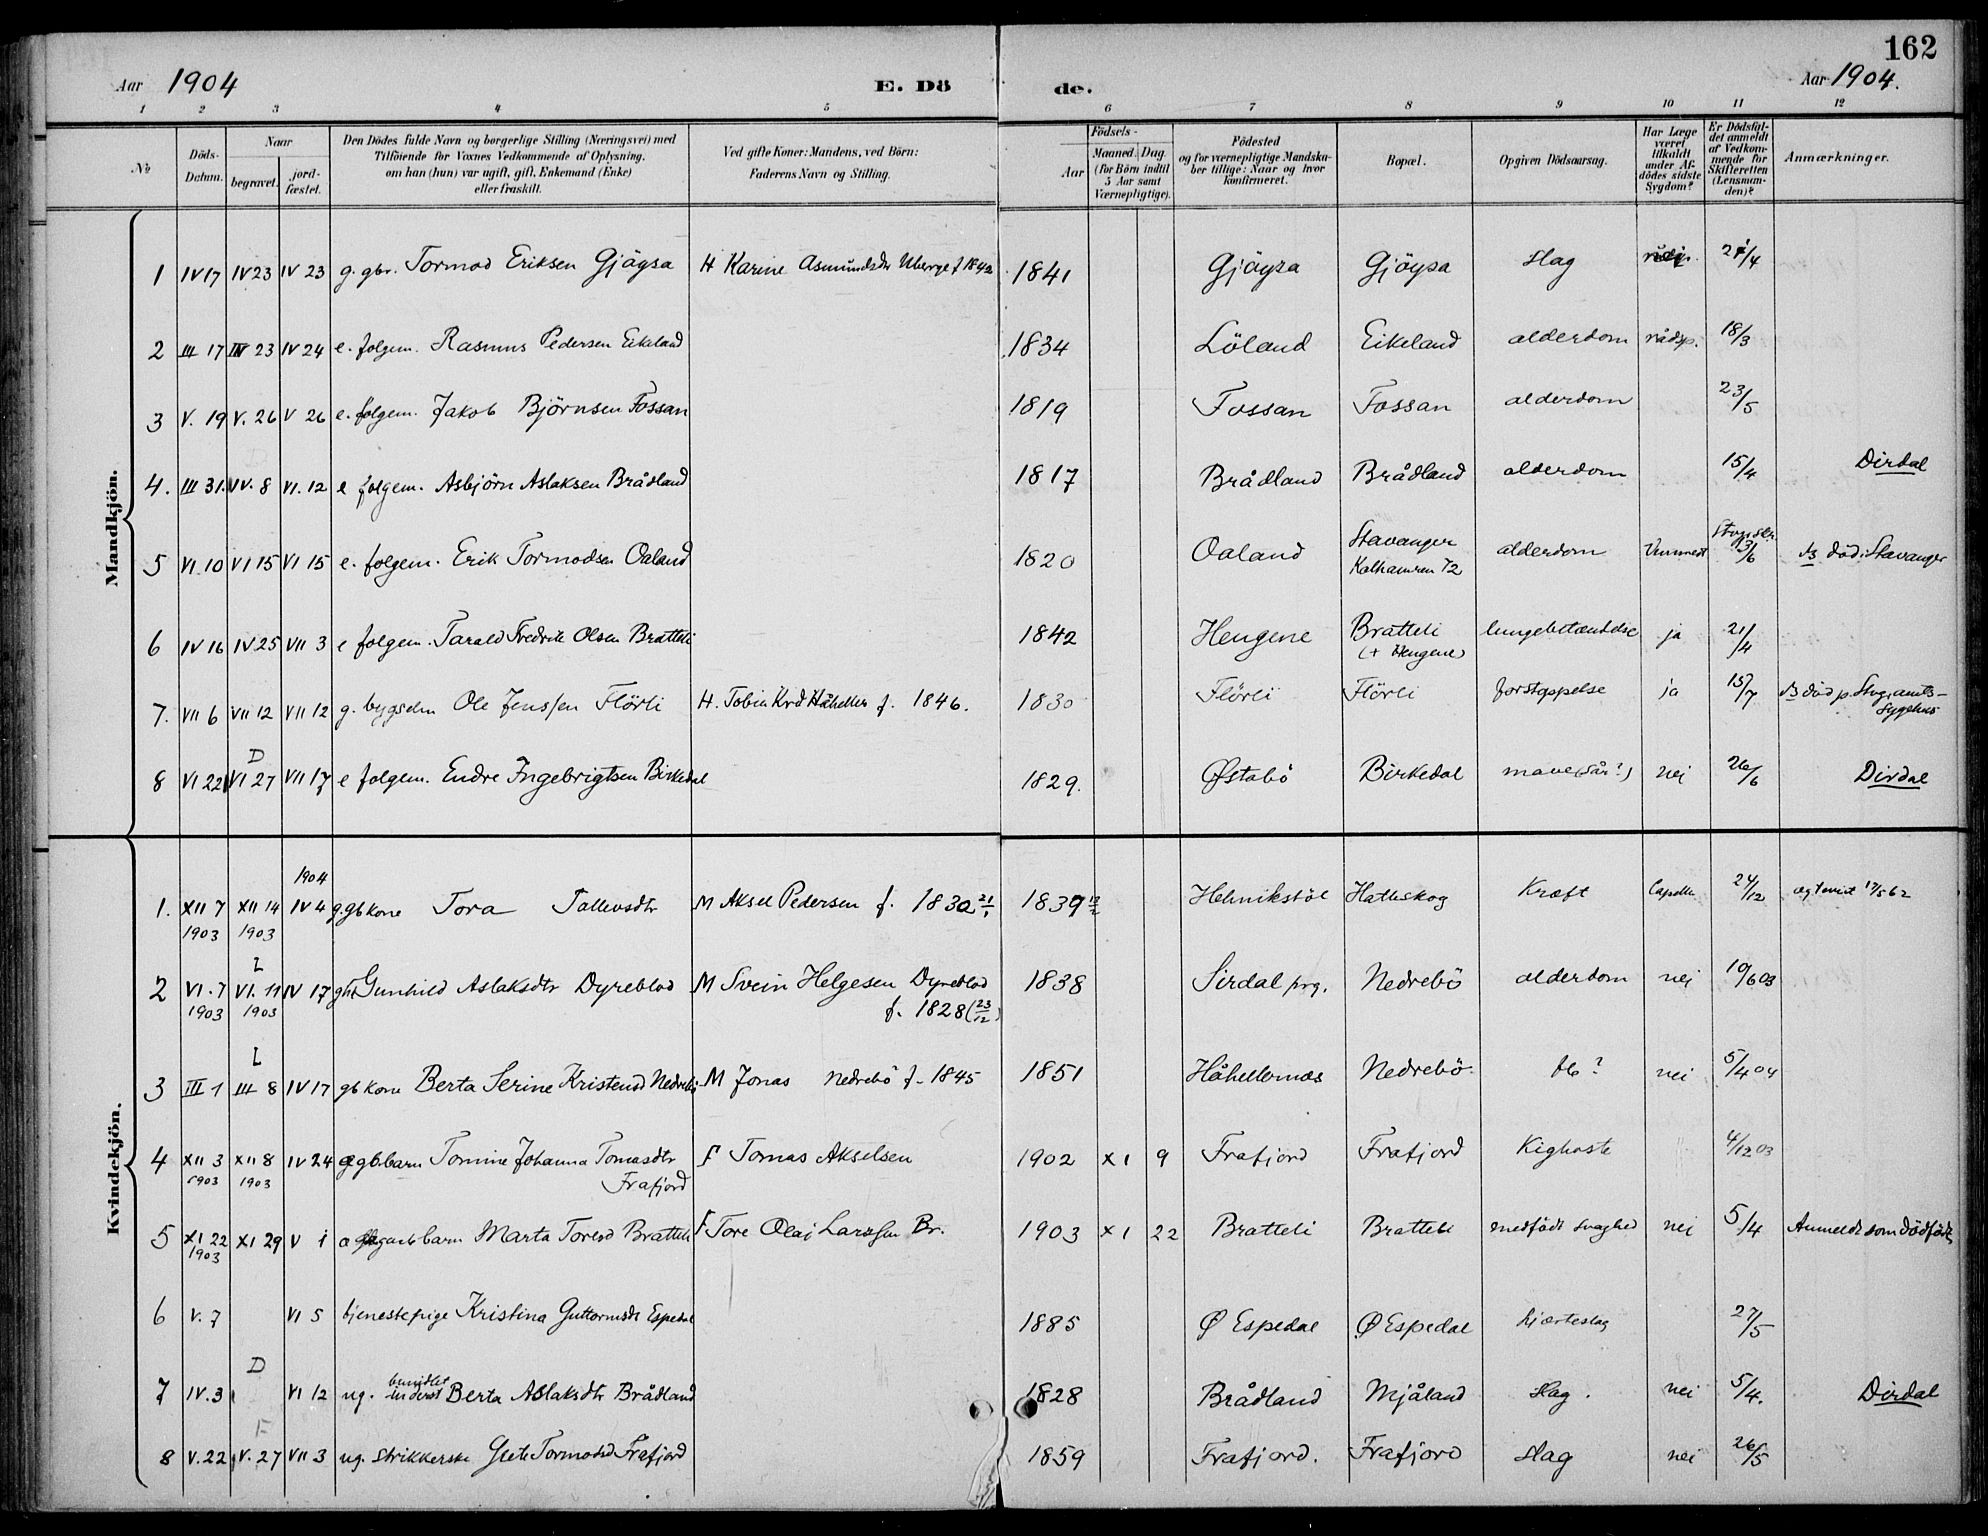 162
Aar 1904 E. Dö de. Aar 1904.
1 2 3 4 5 6 7 8 9 10 11 12
No
Döds-Datum.
Naar
begravet. jordfæstet.
Den Dödes fulde Navn og borgerlige Stilling (Næringsvei) med
Tilföiende for Voxnes Vedkommende af Oplysning,
om han (hun) var ugift, gift, Enkemand (Enke)
eller fraskilt.
Ved gifte Koner: Mandens, ved Börn:
Faderens Navn og Stilling.
Födsels-
Aar
Maaned. Dag.
(for Börn indtil
5 Aar samt
Værnepligtige).
Födested
og for værnepligtige Mandska-
ber tillige: Naar og hvor
konfirmeret.
Bopæl.
Opgiven Dödsaarsag.
Har Læge
været
tilkaldt
under Af-
dödes sidste
Sygdom?
Er Dödsfal-
det anmeldt
af Vedkom-
mende for
Skifteretten
(Lensman-
den)?
Anmærkninger.
Mandkjön.
1 IV 17 IV 23 IV 23 g. gbr. Tormod Eriksen Gjöysa H Karine Asmundsdtr f 1842 1841 Gjöysa Gjöysa slag 21/4
2 III 17 IV 23 IV 24 e. folgem. Rasmus Pedersen Eikeland 1834 Löland Eikeland alderdom rådsp. 18/3
3 V. 19 V. 26 V 26 e. folgem. Jakob Björnsen Fossan 1819 Fossan Fossan alderdom 23/5
4. III 31. IV. 8 VI. 12 e folgem. Asbjörn Aslaksen Brådland 1817 Brådland Brådland alderdom 15/4 Dirdal
5 VI 10 VI 15 VI 15 e. folgem. Erik Tormodsen Oaland 1820 Oaland Stavanger
Kalhammren 72 alderdom 13/6 död i Stavanger
6 IV 16 IV 25 VII 3 e folgem. Tarald Fredrik Olsen Bratteli 1842 Hengene Bratteli
(+ Hengene) lungebetændelse ja 21/4
7. VII 6 VII 12 VII 12 g. bygselm Ole Jenssen Flörli H. Tobia Krd Håheller f. 1846. 1830 Flörli Flörli forstoppelse ja 15/7 död p. Stvg. amts-
sygehus
D
8 VI 22 VI 27 VII 17 e folgem. Endre Ingebrigtsen Birkedal 1829. Østabö Birkedal mave(sår?) nei 26/6 Dirdal
Kvindekjön.
1904
1. XII 7 XII 14 IV 4 g. gbkone Tora Tollevsdtr M Aksel Pedersen f. 1830 21/1 1839 13/2 Helmikstöl Hatleskog Kræft 24/12 17/5 62
1903 1903
L
2 VI. 7 VI. 11 IV 17 Gunhild Aslaksdtr Dyreblod M Svein Helgesen Dyreblod 1838 Sirdal prg. Nedrebö alderdom nei 19/6 03
1903 1903 f. 1828 (23/12)
L
3 III 1 III 8 IV 17 gbkone Berta Serine Kristensd Nedrebö M Jonas Nedrebö f. 1845 1851 Håhellernæs Nedrebö ? nei 5/4 04
4 XII 3 XII 8 IV 24 æ gb.barn Tomine Johanna Tomasdtr F Tomas Akselsen 1902 XI 9 Frafjord Frafjord Kighoste 4/12 03
1903 1903 Frafjord
5 XI 22 XI 29 V 1 barn Marta Toresd Bratteli F Tore Olai Larssen Br. 1903 XI 22 Bratteli Bratteli medfödt svaghed nei 5/4 Anmeldt som dödfödt
1903
6 V. 7 VI 5 tjenestepige Kristina Guttormsdt Espedal 1885 Ø Espedal Ø Espedal hjerteslag 27/5
D
7 IV. 3 VI 12 ug. inderst Berta Aslaksdtr Brådland 1828 Brådland Mjåland slag. nei 5/4. Dirdal
F
8 V. 22 V. 27 VII 3 ug. strikkerske Grete Tormodsd Frafjord 1859 Frafjord. Frafjord slag nei 26/5